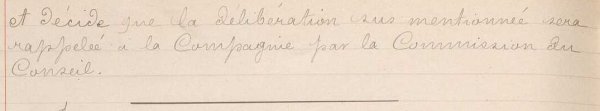 et décide que la délibération sus mentionneé sera
rappeleé à la Compagnie par la Commission du
Conseil.